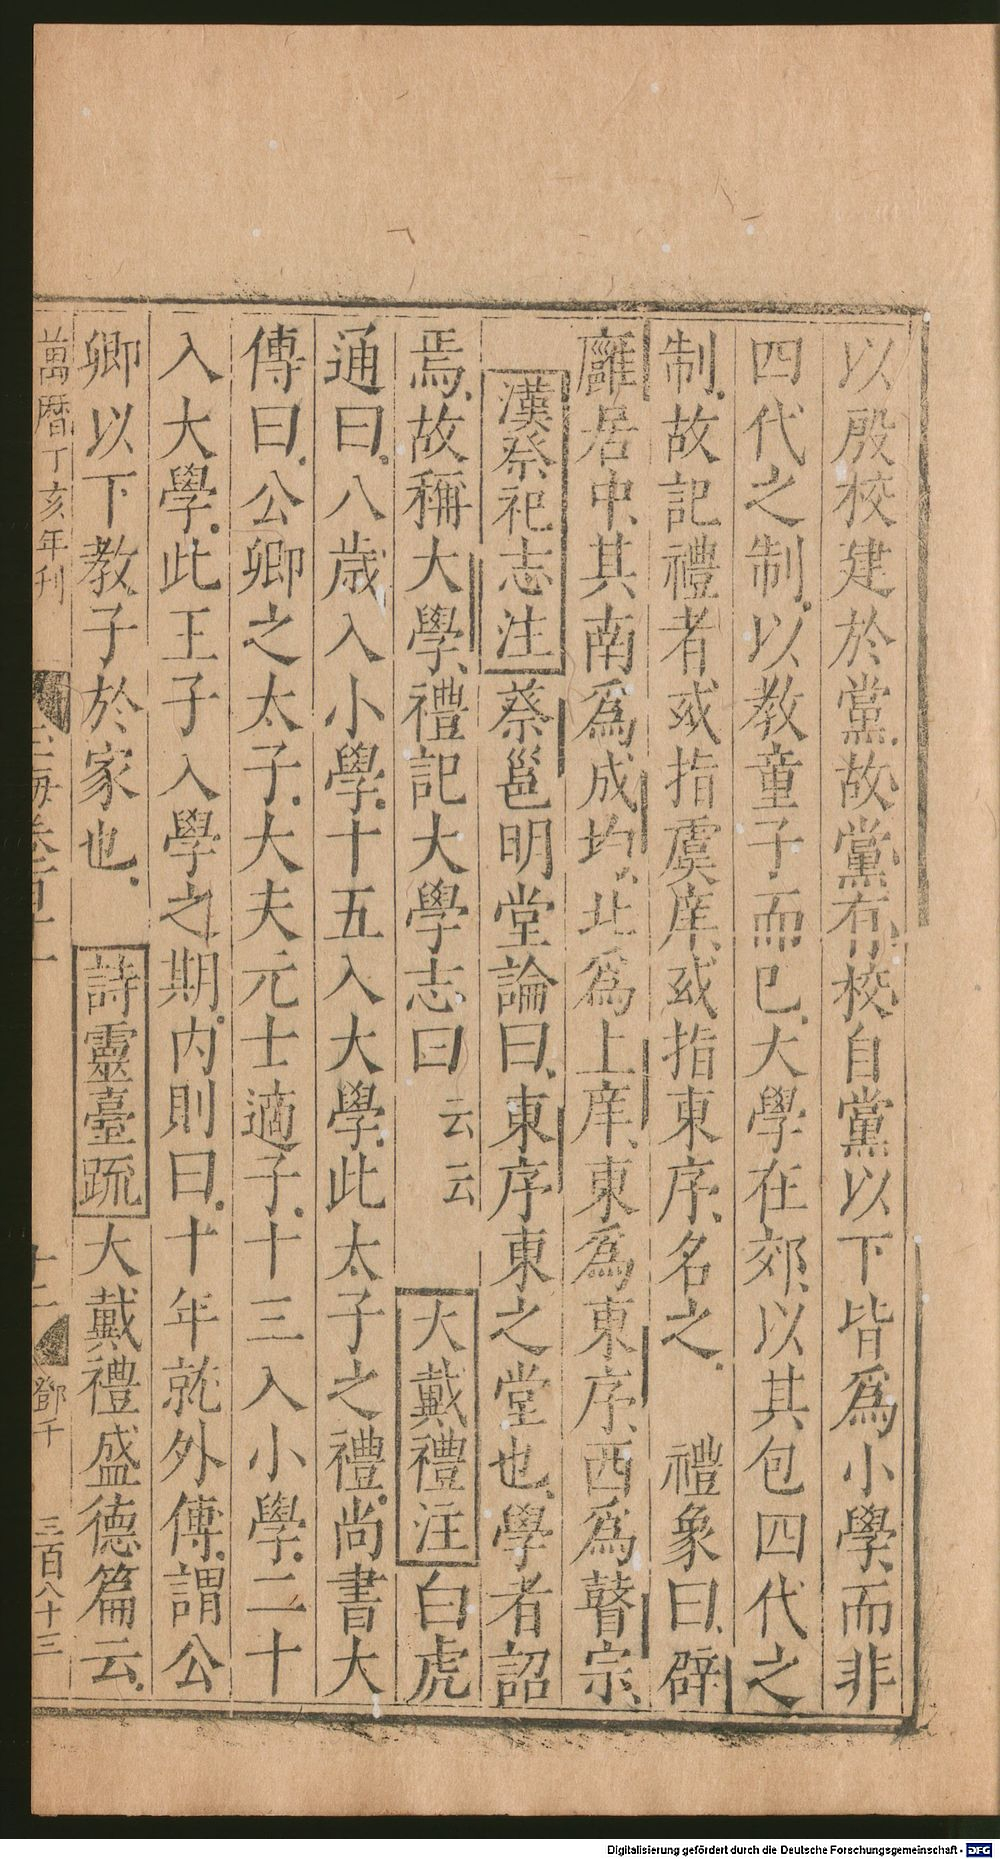 以殷校建於黨故黨有校自黨以下皆爲小學而非
四代之制以教童子而已大學在郊以其包四代之
制故記禮者或指虞庠或指東序名之 禮象曰辟
廱居中其南爲成均北爲上庠東爲東序西爲瞽宗
漢祭祀志注 蔡邕明堂論曰東序東之堂也學者詔
焉故稱大學禮記大學志曰云云 大戴禮注 白虎
通曰八歲入小學十五入大學此太子之禮尚書大
傳曰公卿之太子大夫元士適子十三入小學二十
入大學此王子入學之期内則曰十年就外傅謂公
卿以下教子於家也 詩靈臺疏 大戴禮盛德篇云
萬曆丁亥年刊 玉海卷百十一 十二 鄧千 三百八十三
Digitalisierung gefördert durch die Deutsche Forschungsgemeinschaft - DFG